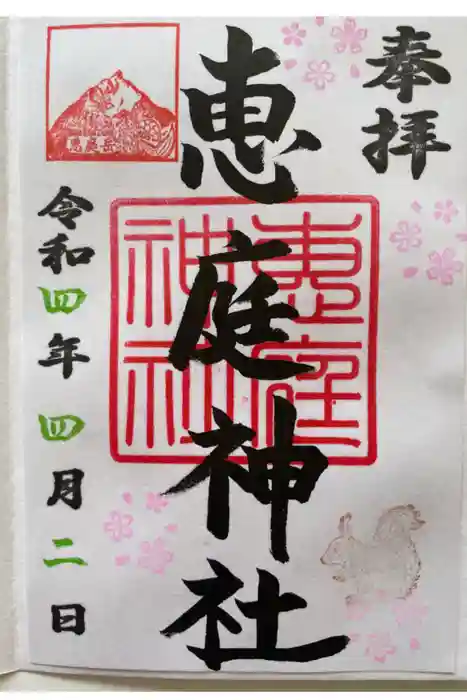 奉拝
恵庭神社
恵庭神社
恵庭岳
令和四年四月二日